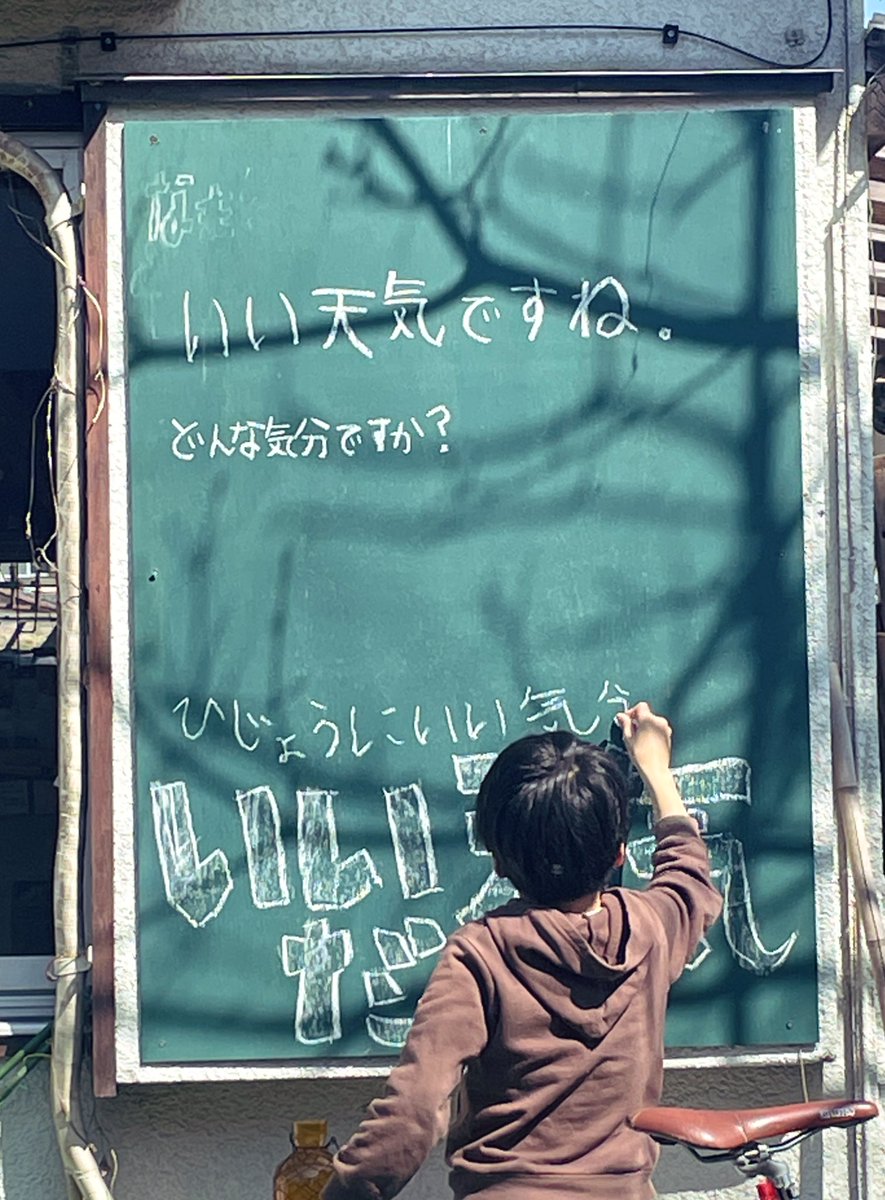 いい天気ですね。
どんな気分ですか?
ひじょうにいい気分
いい天気